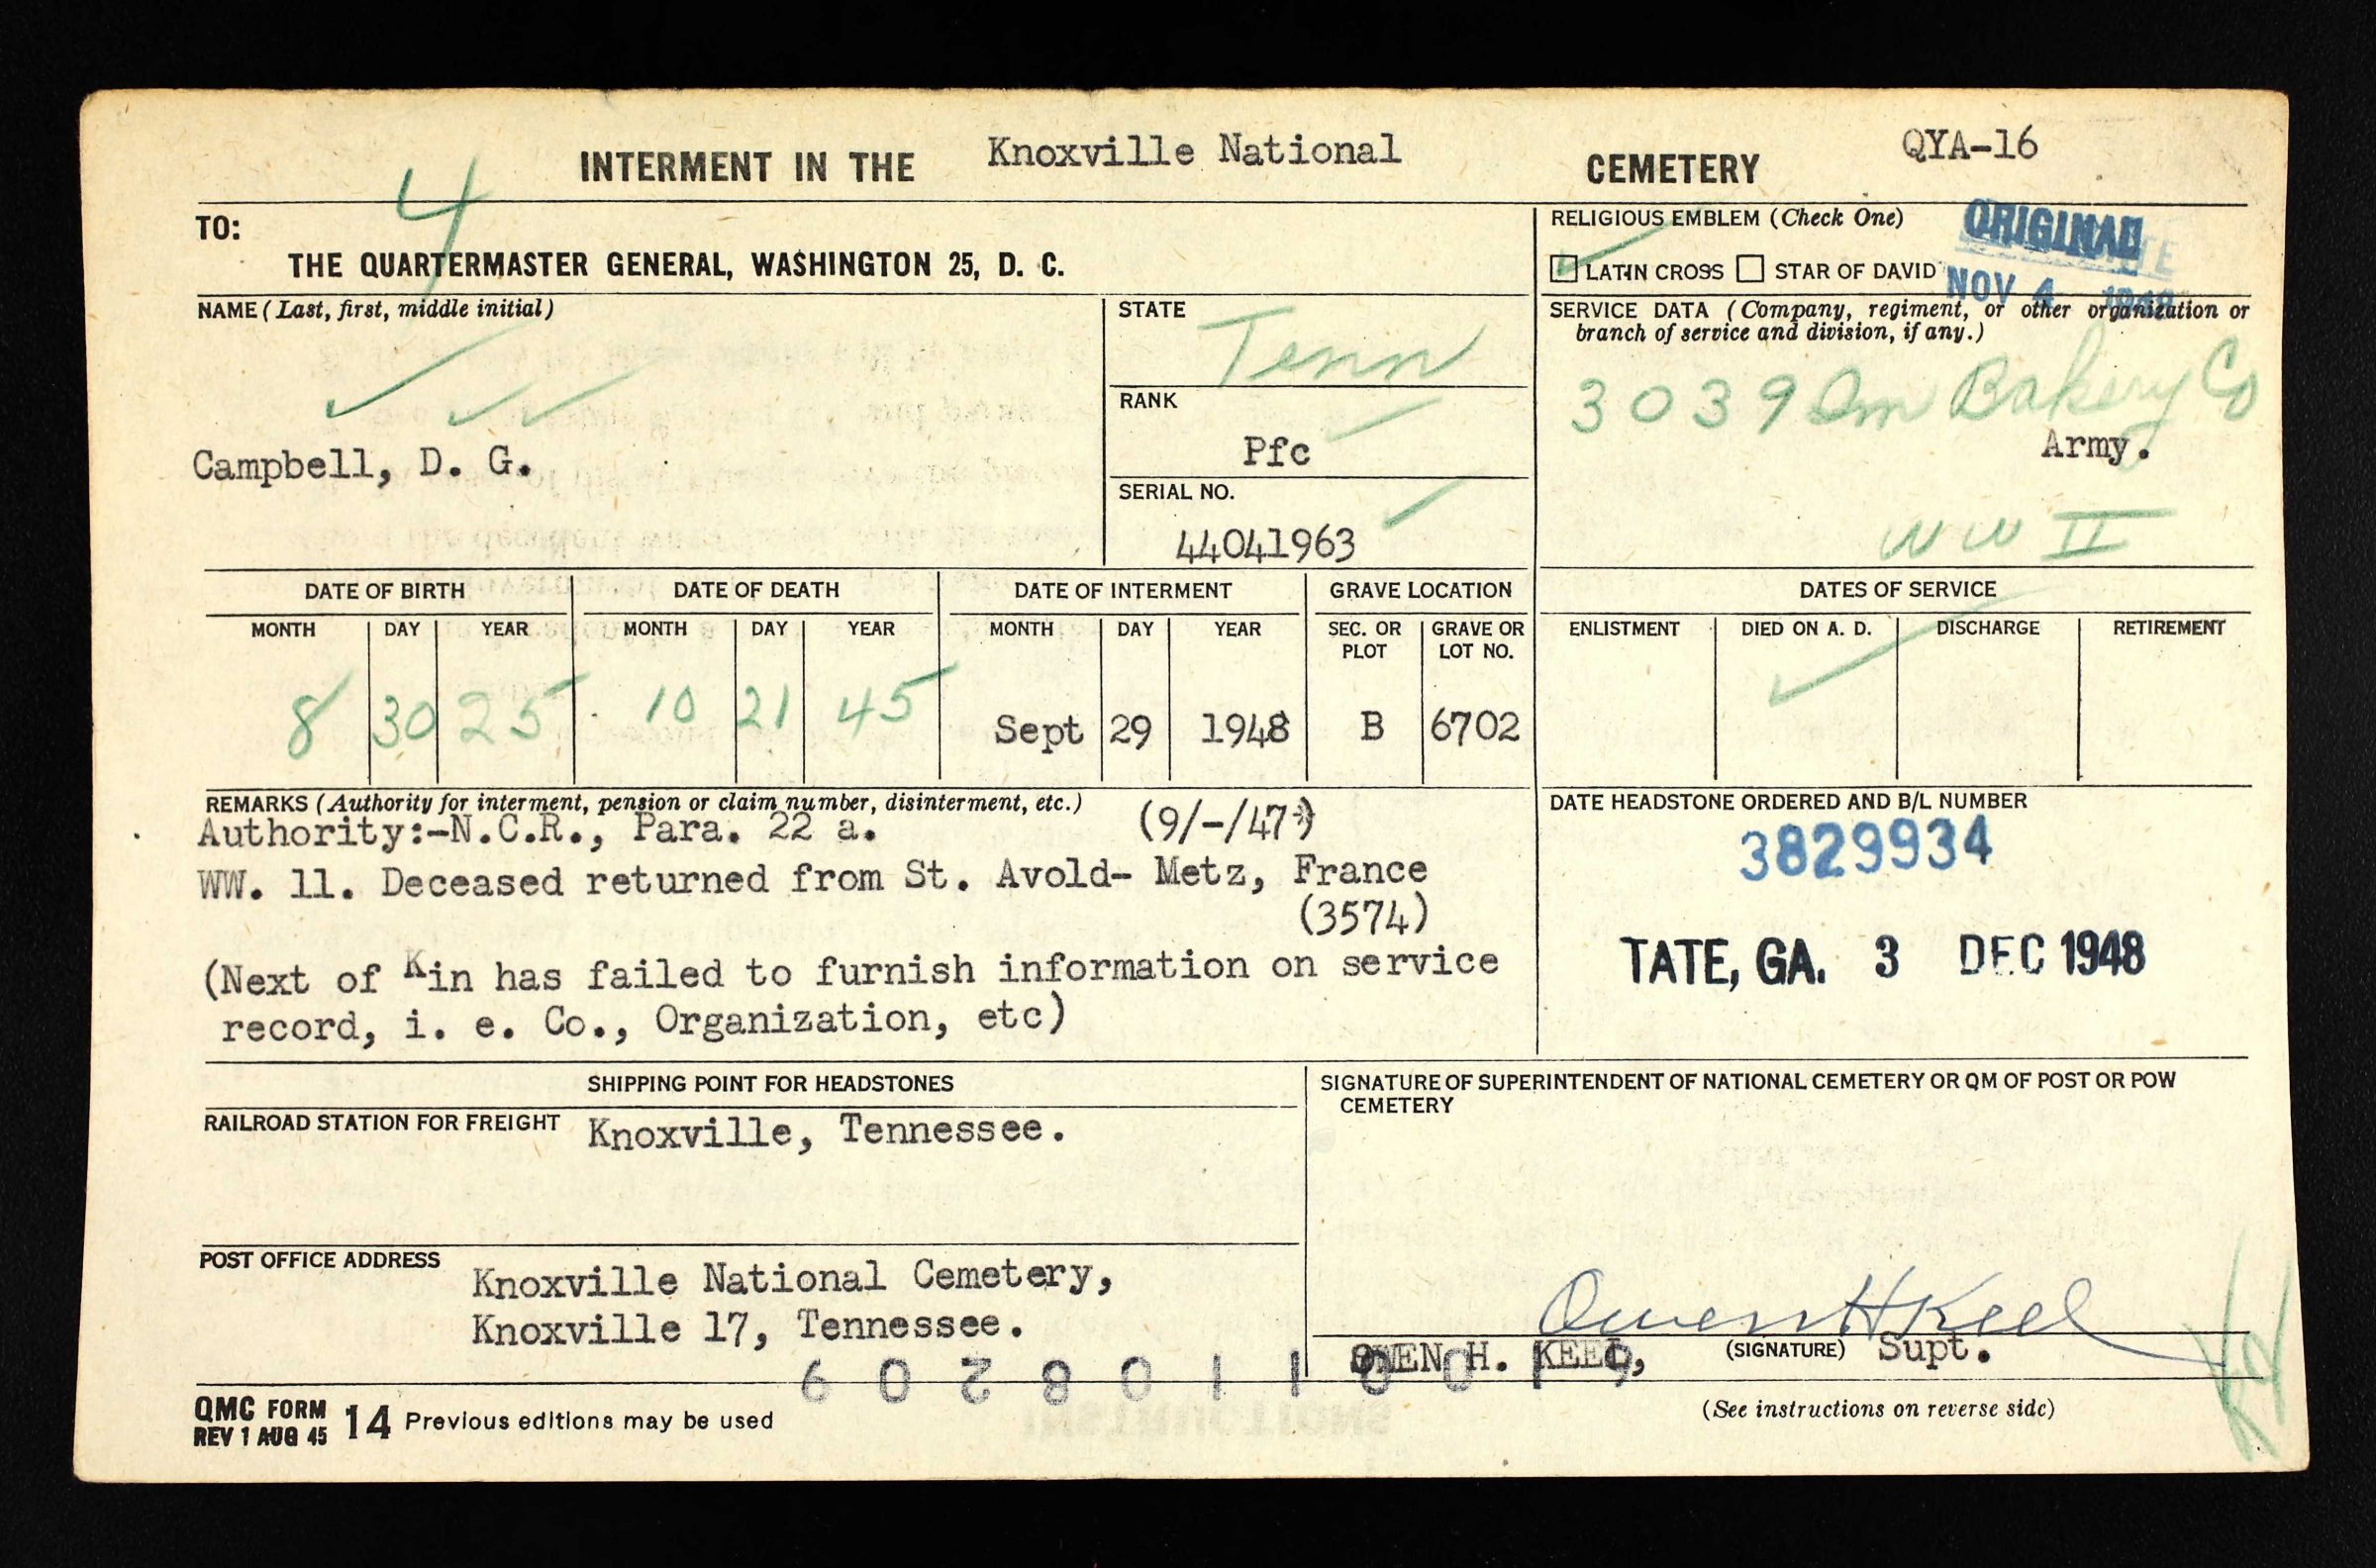 4
INTERMENT IN THE Knoxville National CEMETERY QYA-16
TO:
THE QUARTERMASTER GENERAL, WASHINGTON 25, D. C.
RELIGIOUS EMBLEM (Check One)
LATIN CROSS STAR OF DAVID
ORIGINAL
NOV 4 1948
NAME (Last, first, middle initial)
Campbell, D. G.
STATE
Tenn
RANK
Pfc
SERIAL NO.
44041963
SERVICE DATA (Company, regiment, or other organization or
branch of service and division, if any.)
3039 Qm Bakery Co
Army.
WW II
DATE OF BIRTH DATE OF DEATH DATE OF INTERMENT GRAVE LOCATION DATES OF SERVICE
MONTH DAY YEAR MONTH DAY YEAR MONTH DAY YEAR SEC. OR PLOT GRAVE OR LOT NO. ENLISTMENT DIED ON A. D. DISCHARGE RETIREMENT
8 30 25 10 21 45 Sept 29 1948 B 6702
REMARKS (Authority for interment, pension or claim number, disinterment, etc.)
Authority:-N.C.R., Para. 22 a. (9/-/47)
WW. 11. Deceased returned from St. Avold- Metz, France
(3574)
(Next of Kin has failed to furnish information on service
record, i. e. Co., Organization, etc)
DATE HEADSTONE ORDERED AND B/L NUMBER
3829934
TATE, GA. 3 DEC 1948
SHIPPING POINT FOR HEADSTONES
RAILROAD STATION FOR FREIGHT Knoxville, Tennessee.
POST OFFICE ADDRESS
Knoxville National Cemetery,
Knoxville 17, Tennessee.
SIGNATURE OF SUPERINTENDENT OF NATIONAL CEMETERY OR QM OF POST OR POW
CEMETERY
Owen H Keel
OWEN H. KEEL, (SIGNATURE) Supt.
QMC FORM 14 Previous editions may be used
REV 1 AUG 45
(See instructions on reverse side)